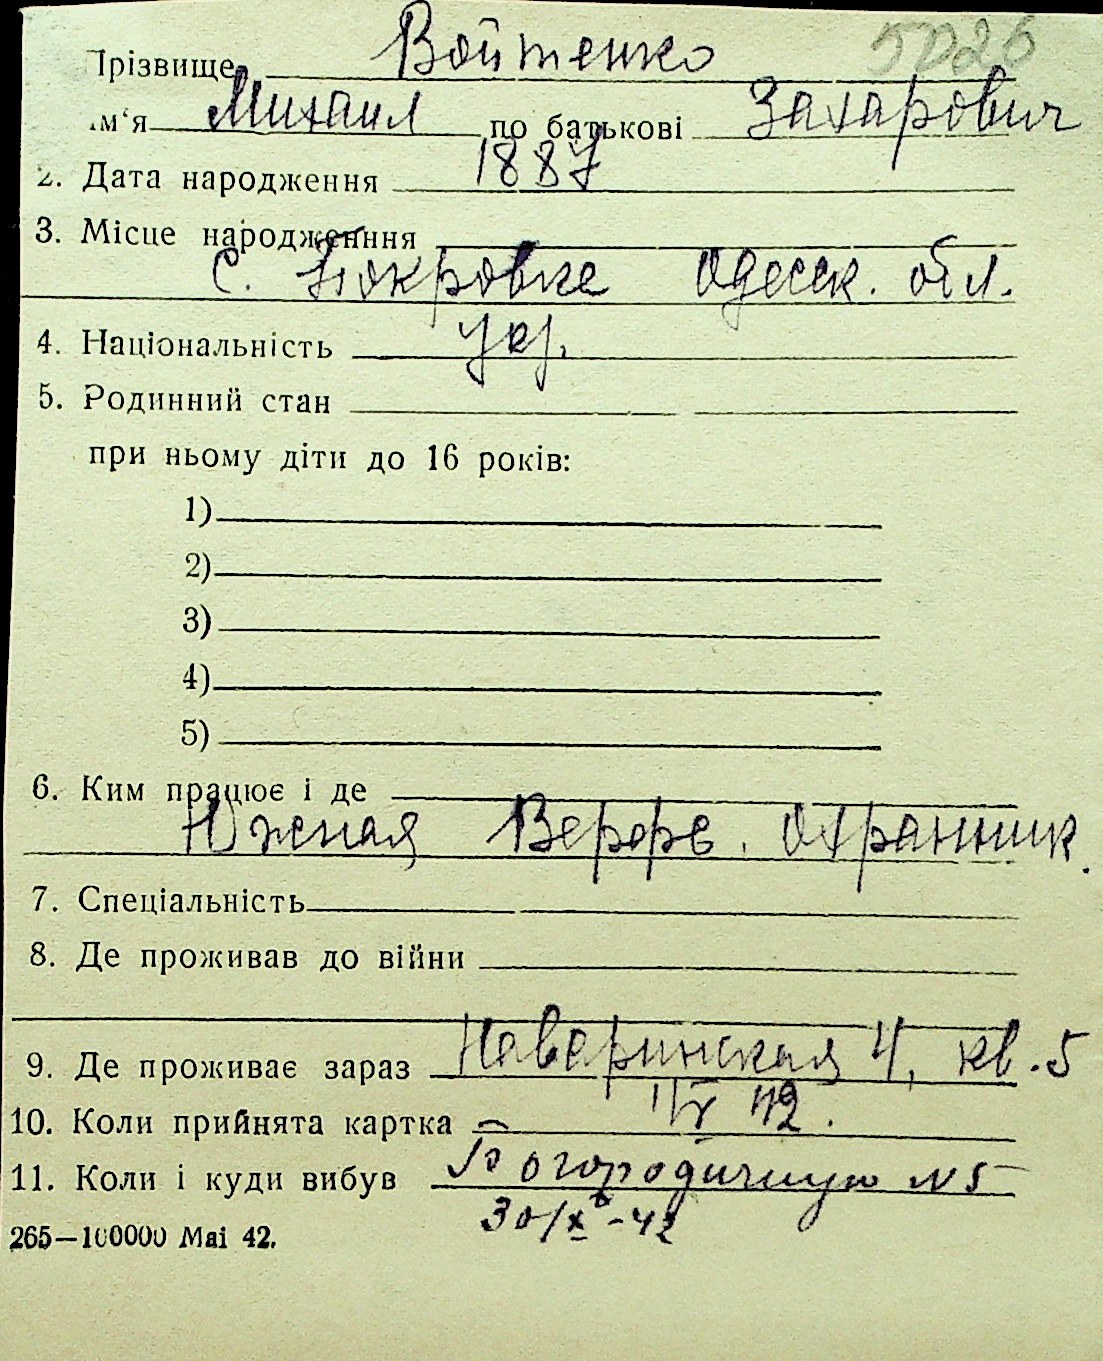 Прізвище Войтенко 5026
ім‘я Михаил по батькові Захарович
2. Дата народження 1887
3. Місце народженння
с. Покровке Одесск. обл.
4. Національність укр.
5. Родинний стан
при ньому діти до 16 років:
1)
2)
3)
4)
5)
6. Ким працює і де
Южная Верфь. охранник.
7. Спеціальність
8. Де проживав до війни
9. Де проживає зараз Наваринская 4, кв. 5
10. Коли прийнята картка 42.
11. Коли і куди вибув Богородичную N 5
30/X - 42
265—100000 Mai 42.